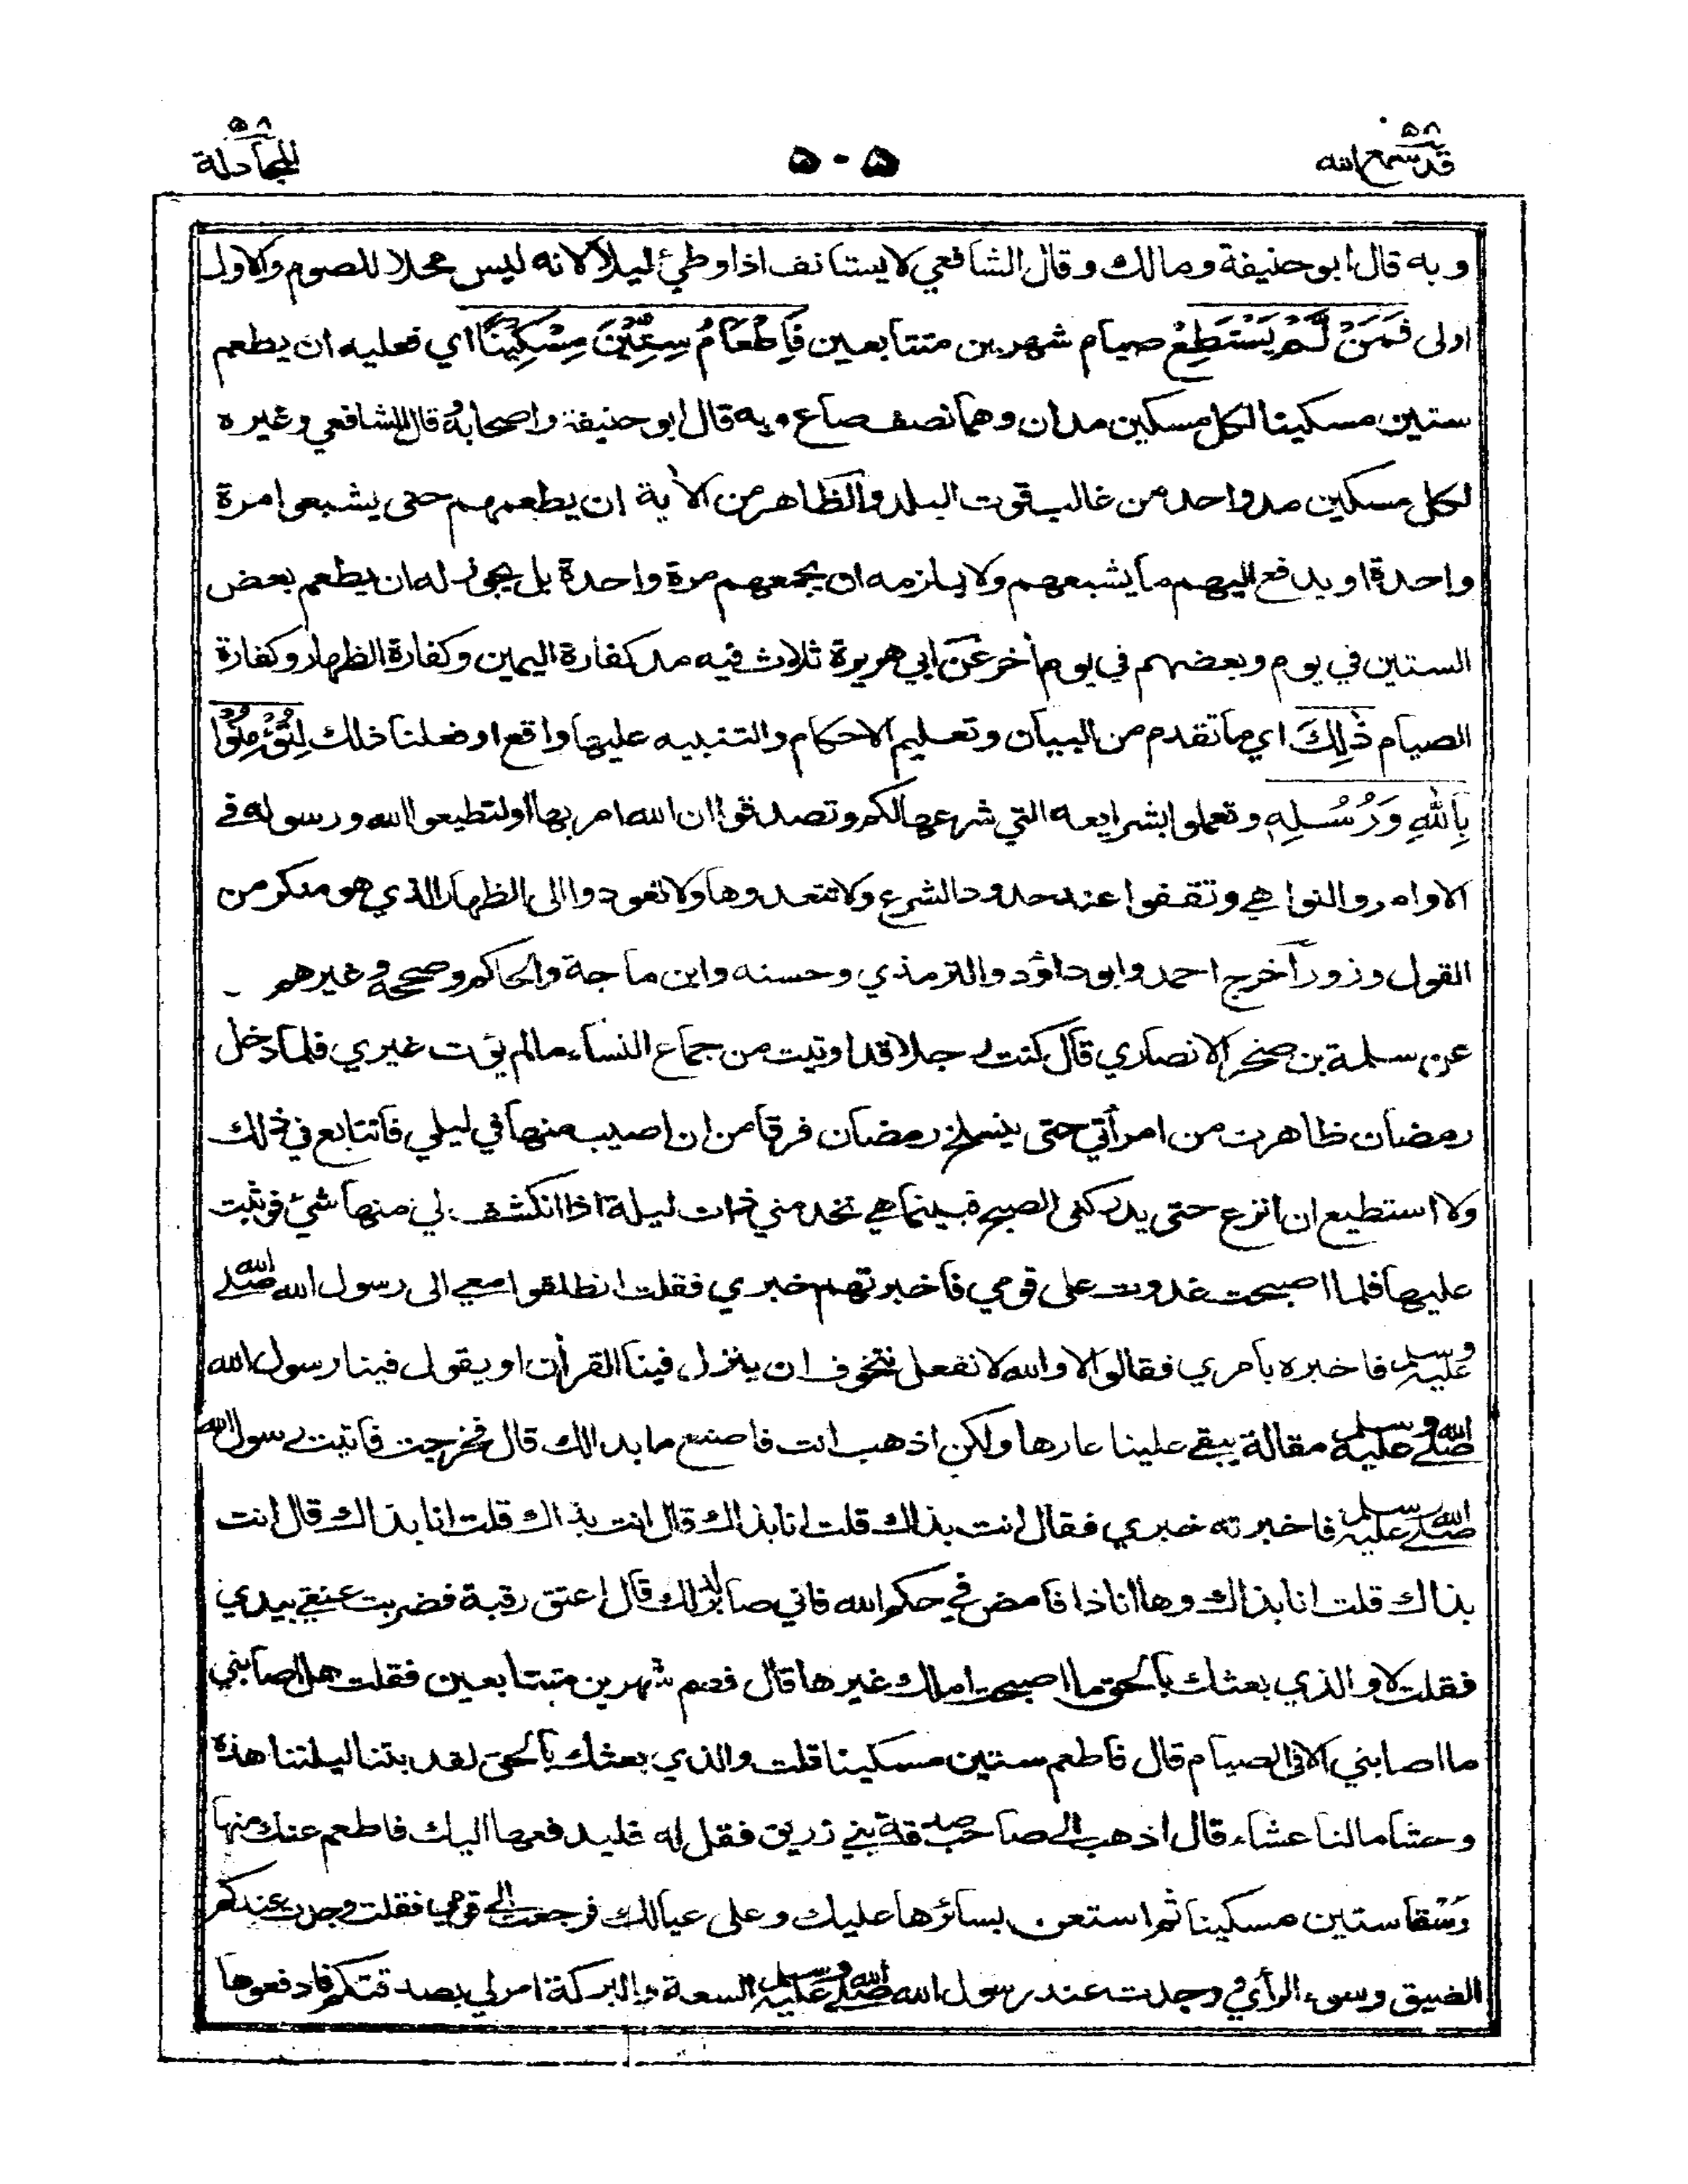 قد سمع الله ٥٨
٥٠٥
المجادلة ٥٨
وبه قال ابو حنيفة ومالك وقال الشافعي لا يستانف اذا وطئ ليلا لانه ليس محلا للصوم والاول
اولى فَمَنْ لَّمْ يَسْتَطِعْ صيام شهرين متتابعين فَاِطْعَامُ سِتِّيْنَ مِسْكِيْنًا اي فعليه ان يطعم
ستين مسكينا لكل مسكين مدان وهما نصف صاع وبه قال ابو حنيفة واصحابه وقال الشافعي وغيره
لكل مسكين مد واحد من غالب قوت البلد والظاهر من الأية ان يطعمهم حتى يشبعوا مرة
واحدة او يدفع اليهم ما يشبعهم ولا يلزمه ان يجمعهم مرة واحدة بل يجوز له ان يطعم بعض
الستين في يوم وبعضهم في يوم أخر عن ابي هريرة ثلاث فيه مد كفارة اليمين وكفارة الظهار وكفارة
الصيام ذٰلِكَ اي ما تقدم من البيان وتعليم الاحكام والتنبيه عليها واقع او فعلنا ذلك لِتُؤْمِنُوْا
بِاللّٰهِ وَرُسُلِهٖ وتعملوا بشرايعه التي شرعها لكم وتصدقوا ان الله امر بها او لتطيعوا الله ورسوله في
الاوامر والنواهي وتقفوا عند حدود الشرع ولا تتعدوها ولا تعودوا الى الظهار الذي هو منكر من
القول وزور أخرج احمد وابو داؤد والترمذي وحسنه وابن ماجة والحاكم وصححه وغيرهم
عن سلمة بن صخر الانصاري قال كنت رجلا قد اوتيت من جماع النساء ما لم يؤت غيري فلما دخل
رمضان ظاهرت من امرأتي حتى ينسلخ رمضان فرقا من ان اصيب منها في ليلي فاتتابع في ذلك
ولا استطيع ان انزع حتى يدركني الصبح فبينما هي تخدمني ذات ليلة اذ انكشف لي منها شئ فوثبت
عليها فلما اصبحت غدوت على قومي فاخبرتهم خبري فقلت انطلقوا معي الى رسول الله صلى الله
عليه وسلم فاخبره بأمري فقالوا لا والله لا نفعل نتخوف ان ينزل فينا القرأن او يقول فينا رسول الله
صلى الله عليه وسلم مقالة يبقى علينا عارها ولكن اذهب انت فاصنع ما بدا لك قال فخرجت فاتيت رسول الله
صلى الله عليه وسلم فاخبرته خبري فقال انت بذاك قلت انا بذاك قال انت بذاك قلت انا بذاك قال انت
بذاك قلت انا بذاك وها انا ذا فامض في حكم الله فاني صابر لذلك قال اعتق رقبة فضربت عنقي بيدي
فقلت لا والذي بعثك بالحق ما اصبحت املك غيرها قال فصم شهرين متتابعين فقلت هل اصابني
ما اصابني الا في الصيام قال فاطعم ستين مسكينا قلت والذي بعثك بالحق لقد بتنا ليلتنا هذه
وحشا ما لنا عشاء قال اذهب الى صاحب صدقة بني زريق فقل له فليدفعها اليك فاطعم عنك منها
وَسْقا ستين مسكينا ثم استعن بسائرها عليك وعلى عيالك فرجعت الى قومي فقلت وجدت عندكم
الضيق وسوء الرأي ووجدت عند رسول الله صلى الله عليه وسلم السعة والبركة امر لي بصدقتكم فادفعوها